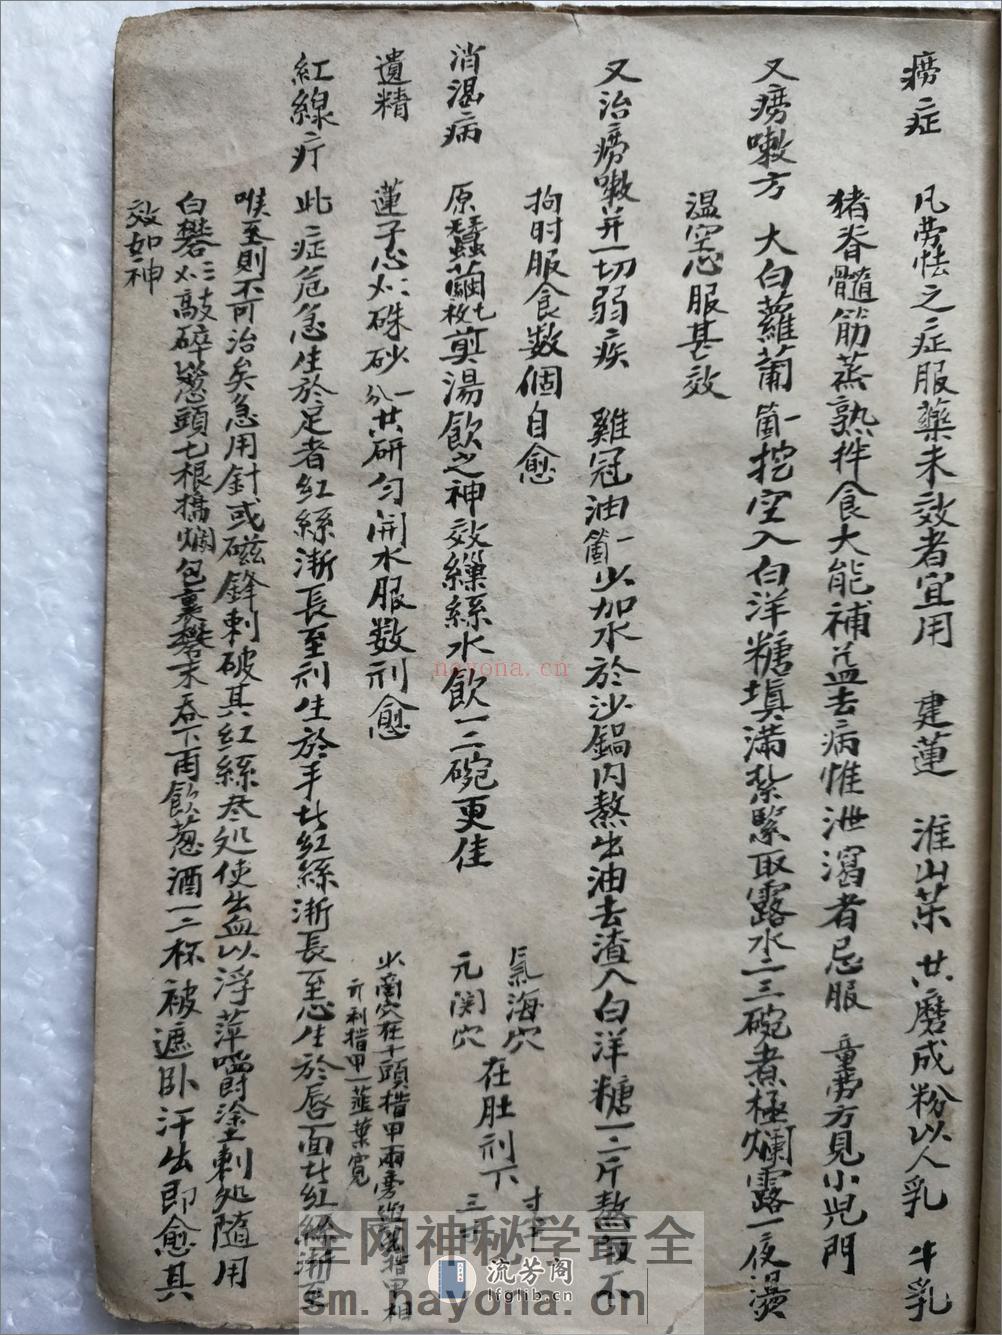 癆症　凡劳怯之症服藥未效者宜用　建蓮　淮山藥　共磨成粉以人乳　牛乳
猪脊髓筋蒸熟拌食大能補益去病惟泄瀉者忌服　童劳方見小児門
又癆嗽方　大白蘿蔔一箇挖空入白洋糖填滿紮緊取露水二三碗煮極爛露一夜燙
温空心服甚效
又治癆嗽并一切弱疾　雞冠油一箇少加水於沙鍋内熬出油去渣入白洋糖一二斤熬融不
拘时服食数個自愈
氣海穴　寸半
元関穴　在肚利下　三寸
消渴病　原蠶繭七枚剪湯飲之神效繰絲水飲一二碗更佳
遺精　蓮子心　硃砂一分共研匀開水服数剂愈
少商穴在十頭指甲兩旁　指甲相
亓利指甲一韮葉寬
紅線疔　此症危急生於足者紅絲漸長至利生於手者紅絲漸長至心生於唇面者紅絲漸至
喉至則不可治矣急用針或磁鋒刺破其紅絲尽処使出血以浮萍嚼塗刺処随用
白礬三　敲碎葱頭七根搗爛包裹礬末吞下再飲葱酒一二杯被遮卧汗出即愈其
效如神
nayona.cn
全网神秘学最全
流芳阁
lfglib.cn
sm.nayona.cn